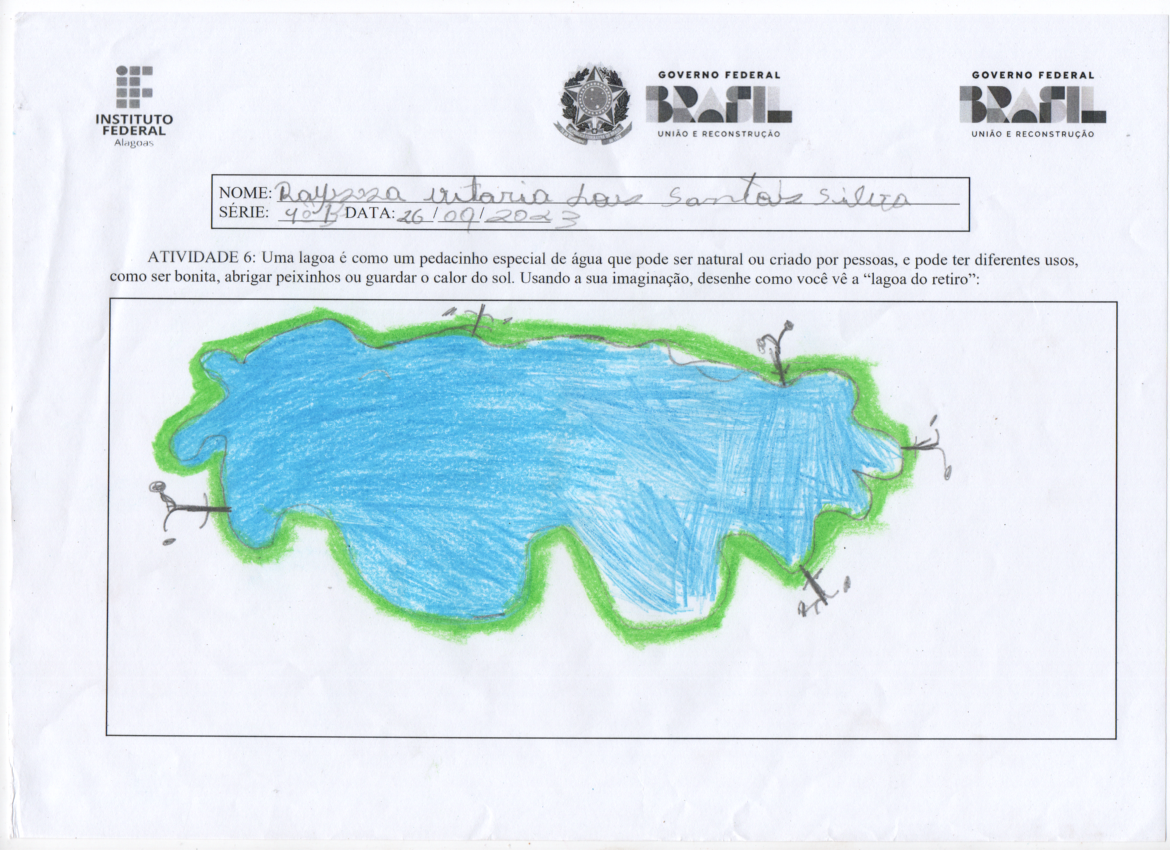 INSTITUTO
FEDERAL
Alagoas
GOVERNO FEDERAL
BRASIL
UNIÃO E RECONSTRUÇÃO
GOVERNO FEDERAL
BRASIL
UNIÃO E RECONSTRUÇÃO
NOME: Rayzza vitoria Santos Silva
SÉRIE: 4º B DATA: 26/09/2023
ATIVIDADE 6: Uma lagoa é como um pedacinho especial de água que pode ser natural ou criado por pessoas, e pode ter diferentes usos,
como ser bonita, abrigar peixinhos ou guardar o calor do sol. Usando a sua imaginação, desenhe como você vê a “lagoa do retiro”: